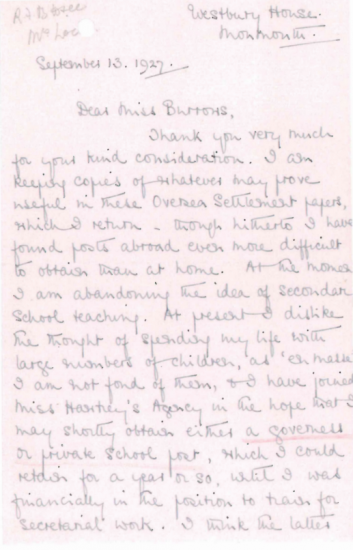 Westbury House.
Monmouth.
September 13. 1927.
Dear Miss Burrows,
Thank you very much
for your kind consideration. I am
keeping copies of whatever may prove
useful in these Oversea Settlement papers,
which I return - though hitherto I have
found posts abroad even more difficult
to obtain than at home. At the momen
I am abandoning the idea of Secondar
School teaching. At present I dislike
the thought of spending my life with
large numbers of children, as 'en masse
I am not fond of them, & I have joined
Miss Agency in the hope that I
may shortly obtain either a governess
or private School post, which I could
retain for a year or so, until I was
financially in the position to train for
secretarial work. I think the latter